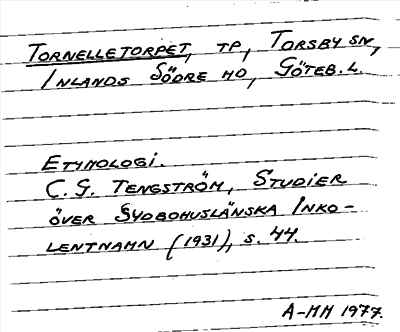 TORNELLETORPET, TP, TORSBY SN,
INLANDS SÖDRE HD, GÖTEB. L.
ETYMOLOGI.
C. G. TENGSTRÖM, STUDIER
ÖVER SYDBOHUSLÄNSKA INKO-
LENTNAMN (1931), S. 44.
A-MH 1977.